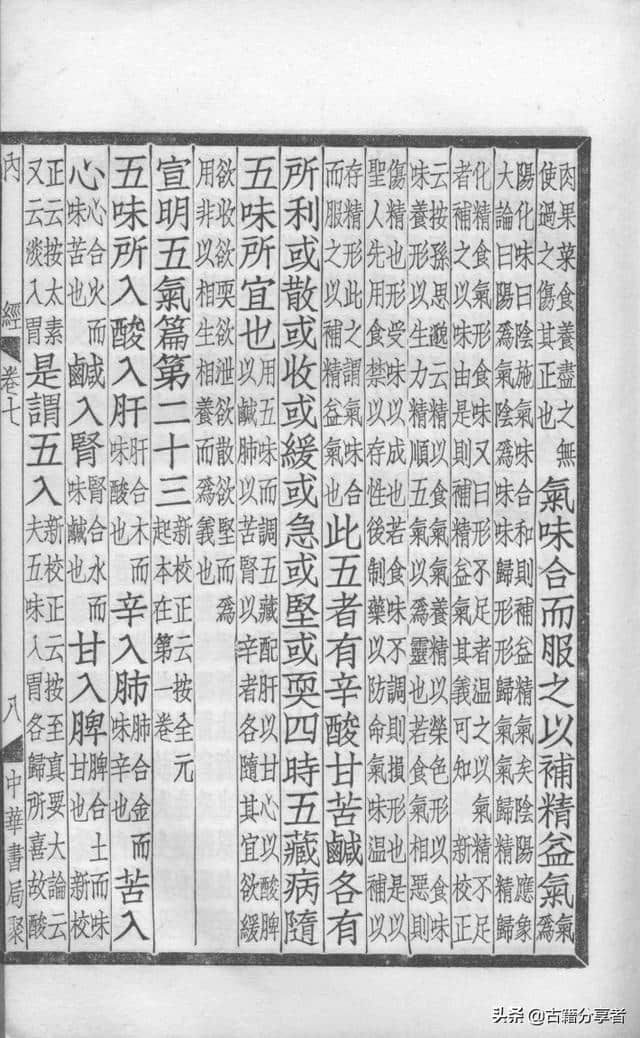 肉果菜食養盡之無使過之傷其正也氣味合而服之以補精益氣氣爲
陽化味曰陰施氣味合和則補益精氣矣陰陽應象
大論曰陽爲氣陰爲味味歸形形歸氣氣歸精精歸
化精食氣形食味又曰形不足者温之以氣精不足
者補之以味由是則補精益氣其義可知 新校正
云按孫思邈云精以食氣氣養精以榮色形以食味
味養形以生力精順五氣以爲靈也若食氣相惡則
傷精也形受味以成也若食味不調則損形也是以
聖人先用食禁以存性後制藥以防命氣味温補以
存精形此之謂氣味合而服之以補精益氣也此五者有辛酸甘苦鹹各有
所利或散或收或緩或急或堅或耎四時五藏病隨
五味所宜也用五味而調五藏配肝以甘心以酸脾以鹹肺以苦腎以辛者各隨其宜欲緩
欲收欲耎欲泄欲散欲堅而爲
用非以相生相養而爲義也
宣明五氣篇第二十三新校正云按全元起本在第一卷
五味所入酸入肝肝合木而味酸也辛入肺肺合金而味辛也苦入
心心合火而味苦也鹹入腎腎合水而味鹹也甘入脾脾合土而味甘也 新校
正云按太素又云淡入胃是謂五入新校正云按至真要大論云夫五味入胃各歸所喜故酸
內經 卷七 八 中華書局聚
头条 @古籍分享者